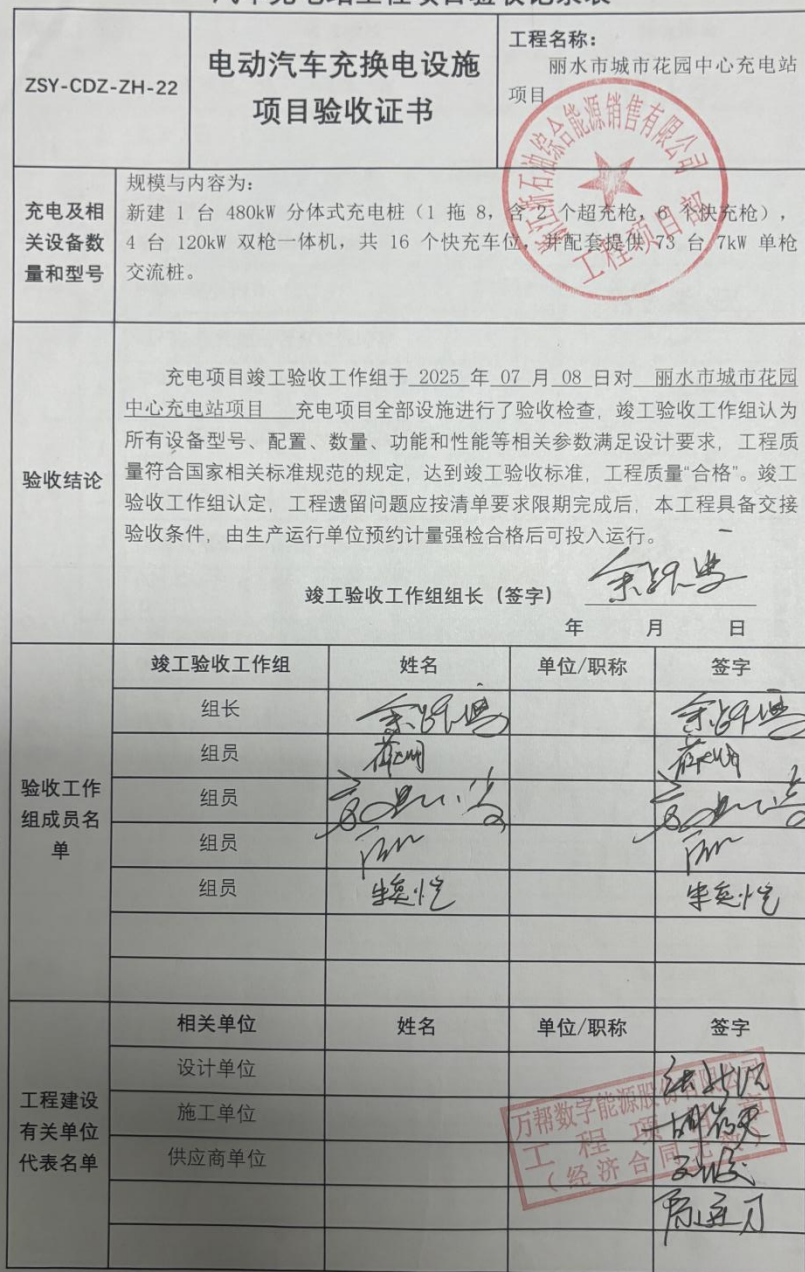 ZSY-CDZ-ZH-22
电动汽车充换电设施
项目验收证书
工程名称：
丽水市城市花园中心充电站
项目
充电及相
关设备数
量和型号
规模与内容为：
新建 1 台 480kW 分体式充电桩（1 拖 8，含 2 个超充枪，6 个快充枪），
4 台 120kW 双枪一体机，共 16 个快充车位，并配套提供 73 台 7kW 单枪
交流桩。
石油综合能源销售有限公司
工程项目部
验收结论
充电项目竣工验收工作组于 2025 年 07 月 08 日对 丽水市城市花园
中心充电站项目 充电项目全部设施进行了验收检查，竣工验收工作组认为
所有设备型号、配置、数量、功能和性能等相关参数满足设计要求，工程质
量符合国家相关标准规范的规定，达到竣工验收标准，工程质量“合格”。竣工
验收工作组认定，工程遗留问题应按清单要求限期完成后，本工程具备交接
验收条件，由生产运行单位预约计量强检合格后可投入运行。
竣工验收工作组组长（签字）
年 月 日
验收工作
组成员名
单
竣工验收工作组 姓名 单位/职称 签字
组长
组员
组员
组员
组员
工程建设
有关单位
代表名单
相关单位 姓名 单位/职称 签字
设计单位
施工单位
供应商单位
万帮数字能源股份有限公司
工程项
（经济合同无